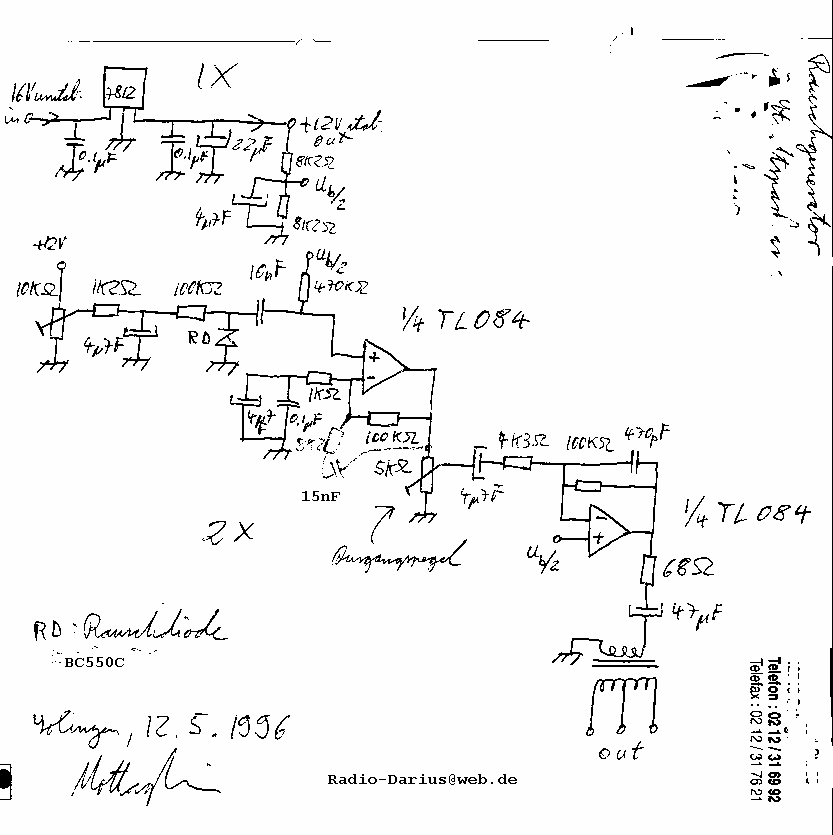 1X
16V unstab.
in
7812
0.1µF
0.1µF
22µF
+12V stab.
out
8K2Ω
Ub/2
4µ7F
8K2Ω
Rauschgenerator
+12V
10KΩ
1K2Ω
100KΩ
4µ7F
RD
10µF
Ub/2
470KΩ
1/4 TL084
1KΩ
4µ7
F
0.1µF
100KΩ
15nF
5KΩ
4µ7F
4K3Ω
100KΩ
470pF
1/4 TL084
Ub/2
68Ω
47µF
out
2X
Ausgangspegel
RD: Rauschdiode
BC550C
Solingen, 12.5.1996
Radio-Darius@web.de
Telefon : 02 12 / 31 69 92
Telefax : 02 12 / 31 76 21